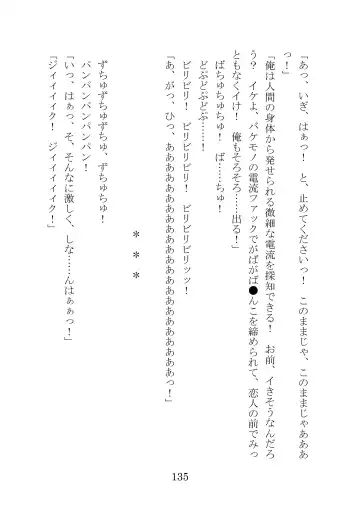 「あっ、いぎ、はぁっ！　と、止めてくださいっ！　このままじゃ、このままじゃあああ
っ！」
「俺は人間の身体から発せられる微細な電流を探知できる！　お前、イきそうなんだろ
う？ イケよ、バケモノの電流ファックでがばがば●んこを締められて、恋人の前でみっ
ともなくイけ！　俺もそろそろ……出る！」
ばちゅちゅちゅ！　ば……ちゅ！
どぷどぷどぷ……！
ビリビリ！　ビリビリビリ！　ビリビリビリッッ！
「あ、がっ、ひっ、ああああああああああああああああああああああああっ！」
＊　＊　＊
ずちゅずちゅずちゅ、ずちゅちゅ！
パンパンパンパンパン！
「いっ、はぁっ、そ、そんなに激しく、しな……んはぁぁっ！」
「ジィィィィク！　ジィィィィク！
135